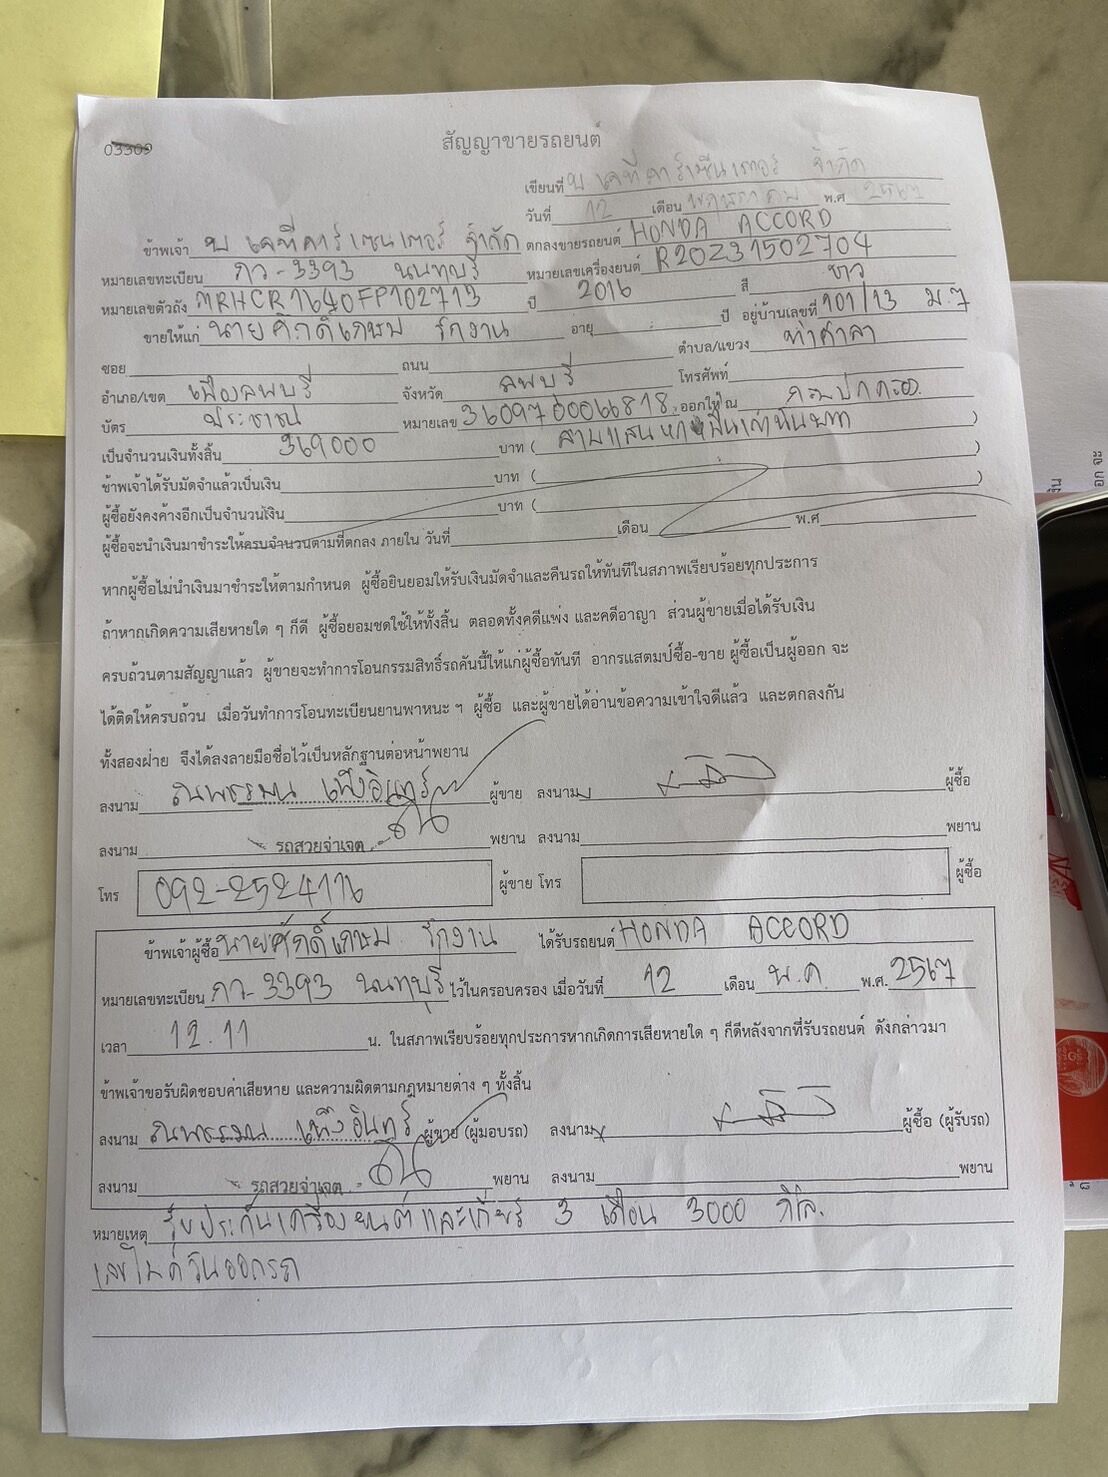 03309
สัญญาขายรถยนต์
เขียนที่ บ เจที คาร์เซ็นเตอร์ จำกัด
วันที่ 12 เดือน พฤษภาคม พ.ศ 2567
ข้าพเจ้า บ เจที คาร์เซนเตอร์ จำกัด ตกลงขายรถยนต์ HONDA ACCORD
หมายเลขทะเบียน ภว-3393 นนทบุรี หมายเลขเครื่องยนต์ R20Z31502704
หมายเลขตัวถัง MRHCR1640FP102713 ปี 2016 สี ขาว
ขายให้แก่ นายศักดิ์เกษม รักงาน อายุ ปี อยู่บ้านเลขที่ 101/13 ม.7
ซอย ถนน ตำบล/แขวง ท่าศาลา
อำเภอ/เขต เมืองลพบุรี จังหวัด ลพบุรี โทรศัพท์
บัตร ประชาชน หมายเลข 3609700066818 ออกให้ ณ
เป็นจำนวนเงินทั้งสิ้น 369000 บาท ( สามแสนหกหมื่นเก้าพันบาท )
ข้าพเจ้าได้รับมัดจำแล้วเป็นเงิน บาท ( )
ผู้ซื้อยังคงค้างอีกเป็นจำนวนเงิน บาท ( )
ผู้ซื้อจะนำเงินมาชำระให้ครบจำนวนตามที่ตกลง ภายใน วันที่ เดือน พ.ศ
หากผู้ซื้อไม่นำเงินมาชำระให้ตามกำหนด ผู้ซื้อยินยอมให้รับเงินมัดจำและคืนรถให้ทันทีในสภาพเรียบร้อยทุกประการ
ถ้าหากเกิดความเสียหายใด ๆ ก็ดี ผู้ซื้อยอมชดใช้ให้ทั้งสิ้น ตลอดทั้งคดีแพ่ง และคดีอาญา ส่วนผู้ขายเมื่อได้รับเงิน
ครบถ้วนตามสัญญาแล้ว ผู้ขายจะทำการโอนกรรมสิทธิ์รถคันนี้ให้แก่ผู้ซื้อทันที อากรแสตมป์ซื้อ-ขาย ผู้ซื้อเป็นผู้ออก จะ
ได้ติดให้ครบถ้วน เมื่อวันทำการโอนทะเบียนยานพาหนะ ฯ ผู้ซื้อ และผู้ขายได้อ่านข้อความเข้าใจดีแล้ว และตกลงกัน
ทั้งสองฝ่าย จึงได้ลงลายมือชื่อไว้เป็นหลักฐานต่อหน้าพยาน
ลงนาม ผู้ขาย ลงนาม ผู้ซื้อ
ลงนาม รถสวยจ่าเจต พยาน ลงนาม พยาน
โทร 092-2524116 ผู้ขาย โทร ผู้ซื้อ
ข้าพเจ้าผู้ซื้อ นายศักดิ์เกษม รักงาน ได้รับรถยนต์ HONDA ACCORD
หมายเลขทะเบียน ภว-3393 นนทบุรี ไว้ในครอบครอง เมื่อวันที่ 12 เดือน พ.ค. พ.ศ. 2567
เวลา 12.11 น. ในสภาพเรียบร้อยทุกประการหากเกิดการเสียหายใด ๆ ก็ดีหลังจากที่รับรถยนต์ ดังกล่าวมา
ข้าพเจ้าขอรับผิดชอบค่าเสียหาย และความผิดตามกฎหมายต่าง ๆ ทั้งสิ้น
ลงนาม ผู้ขาย (ผู้มอบรถ) ลงนาม ผู้ซื้อ (ผู้รับรถ)
ลงนาม รถสวยจ่าเจต พยาน ลงนาม พยาน
หมายเหตุ รับประกันเครื่องยนต์และเกียร์ 3 เดือน 3000 กิโล.
เลขไมค์วันออกรถ